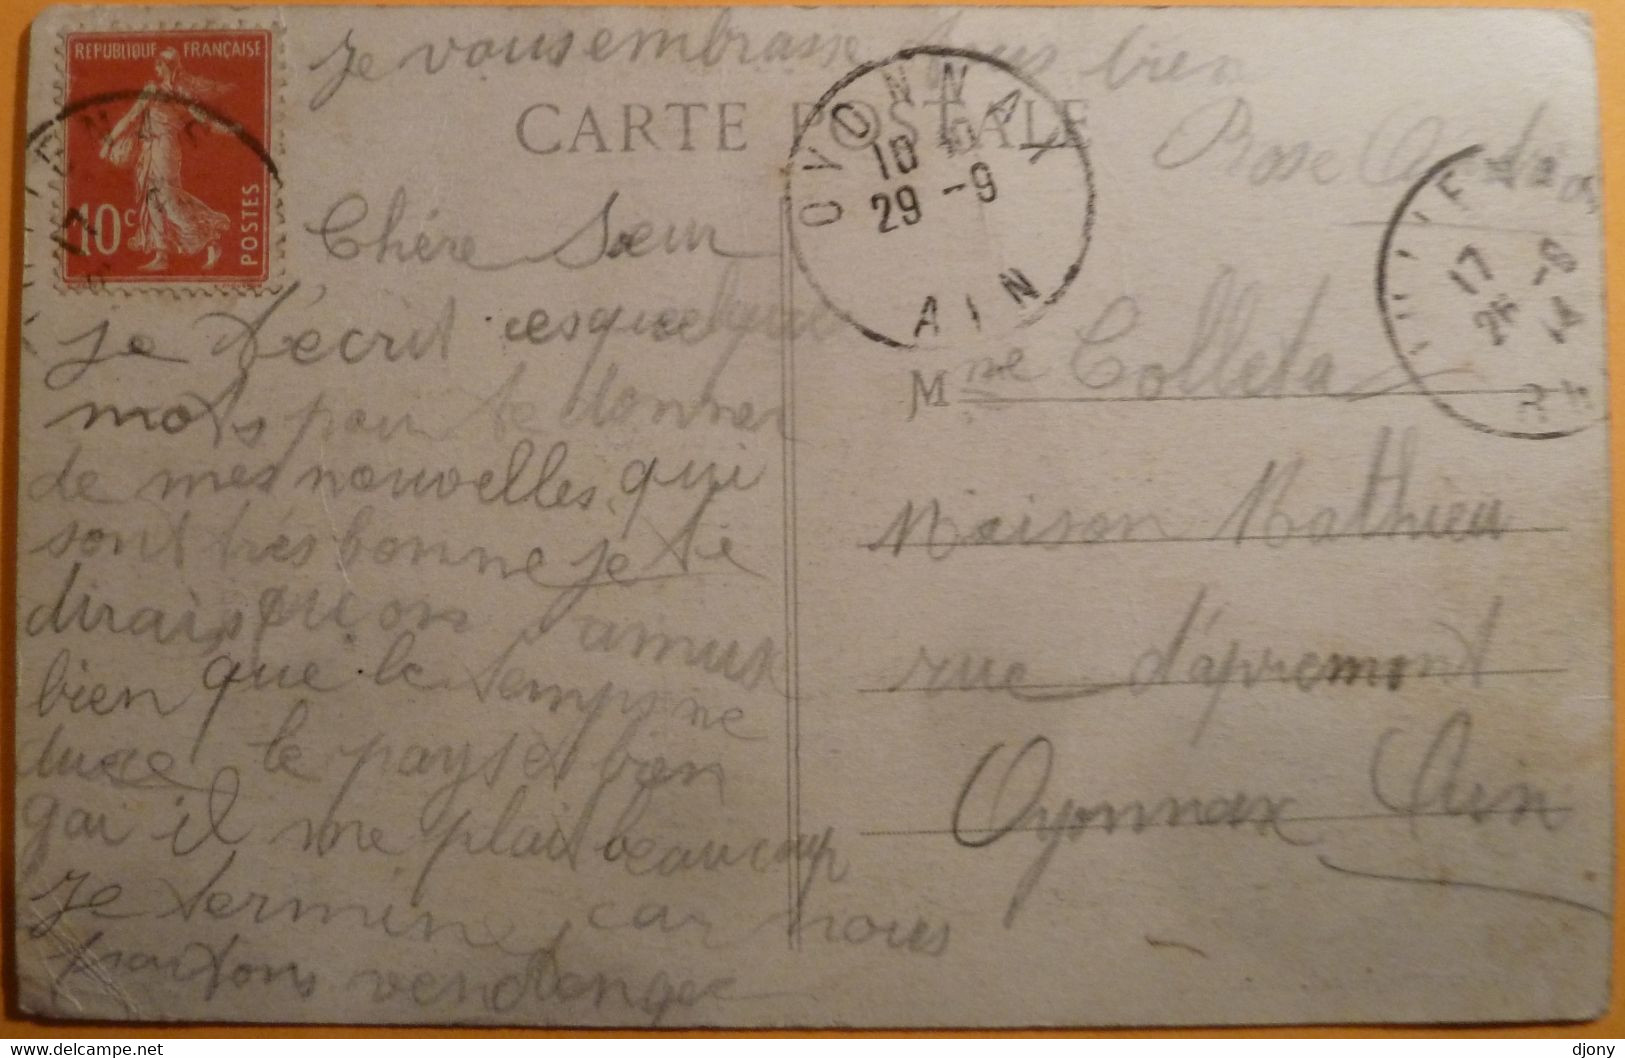 REPUBLIQUE FRANÇAISE
10c
POSTES
je vous embrasse tous bien
Rose
CARTE POSTALE
OYONNAX
10 10
29 -9
AIN
17
26 -9
14
Chère Sœur
je t'écrit ces quelques
mots pour te donner
de mes nouvelles qui
sont très bonne je te
dirais qu'on amuse
bien que le temps ne
dure le pays et bien
gai il me plait beaucoup
je termine car nous
partons vendenger
Mme Colleta
Maison Mathieu
rue d'apremont
Oyonnax Ain
delcampe.net
djony